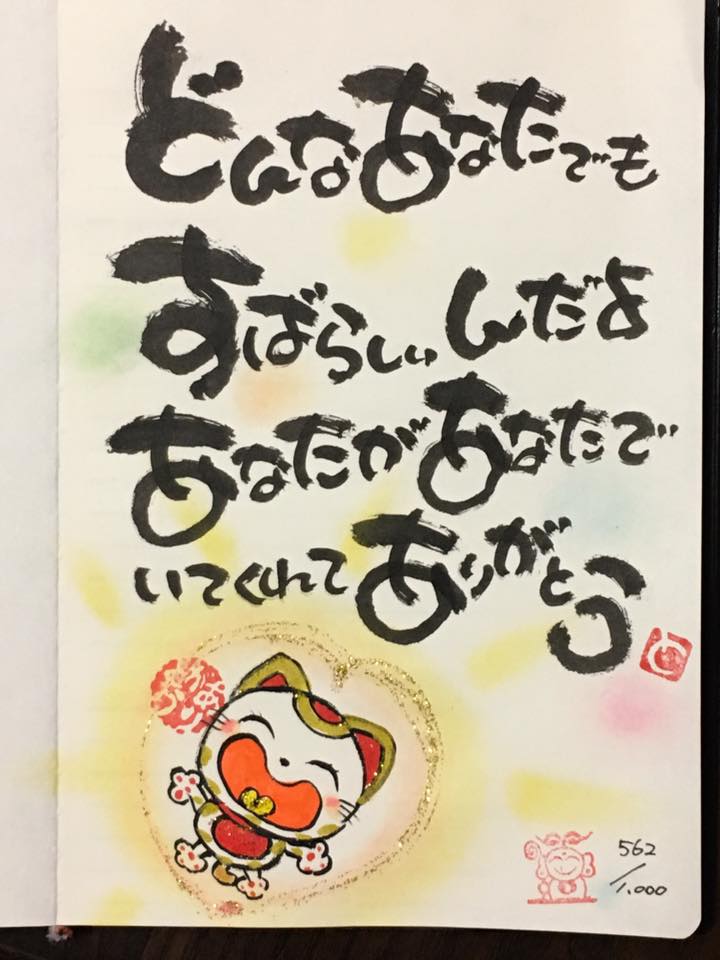 どんなあなたでも
すばらしぃんだよ
あなたがあなたで
いてくれてありがとう
562
/1.000